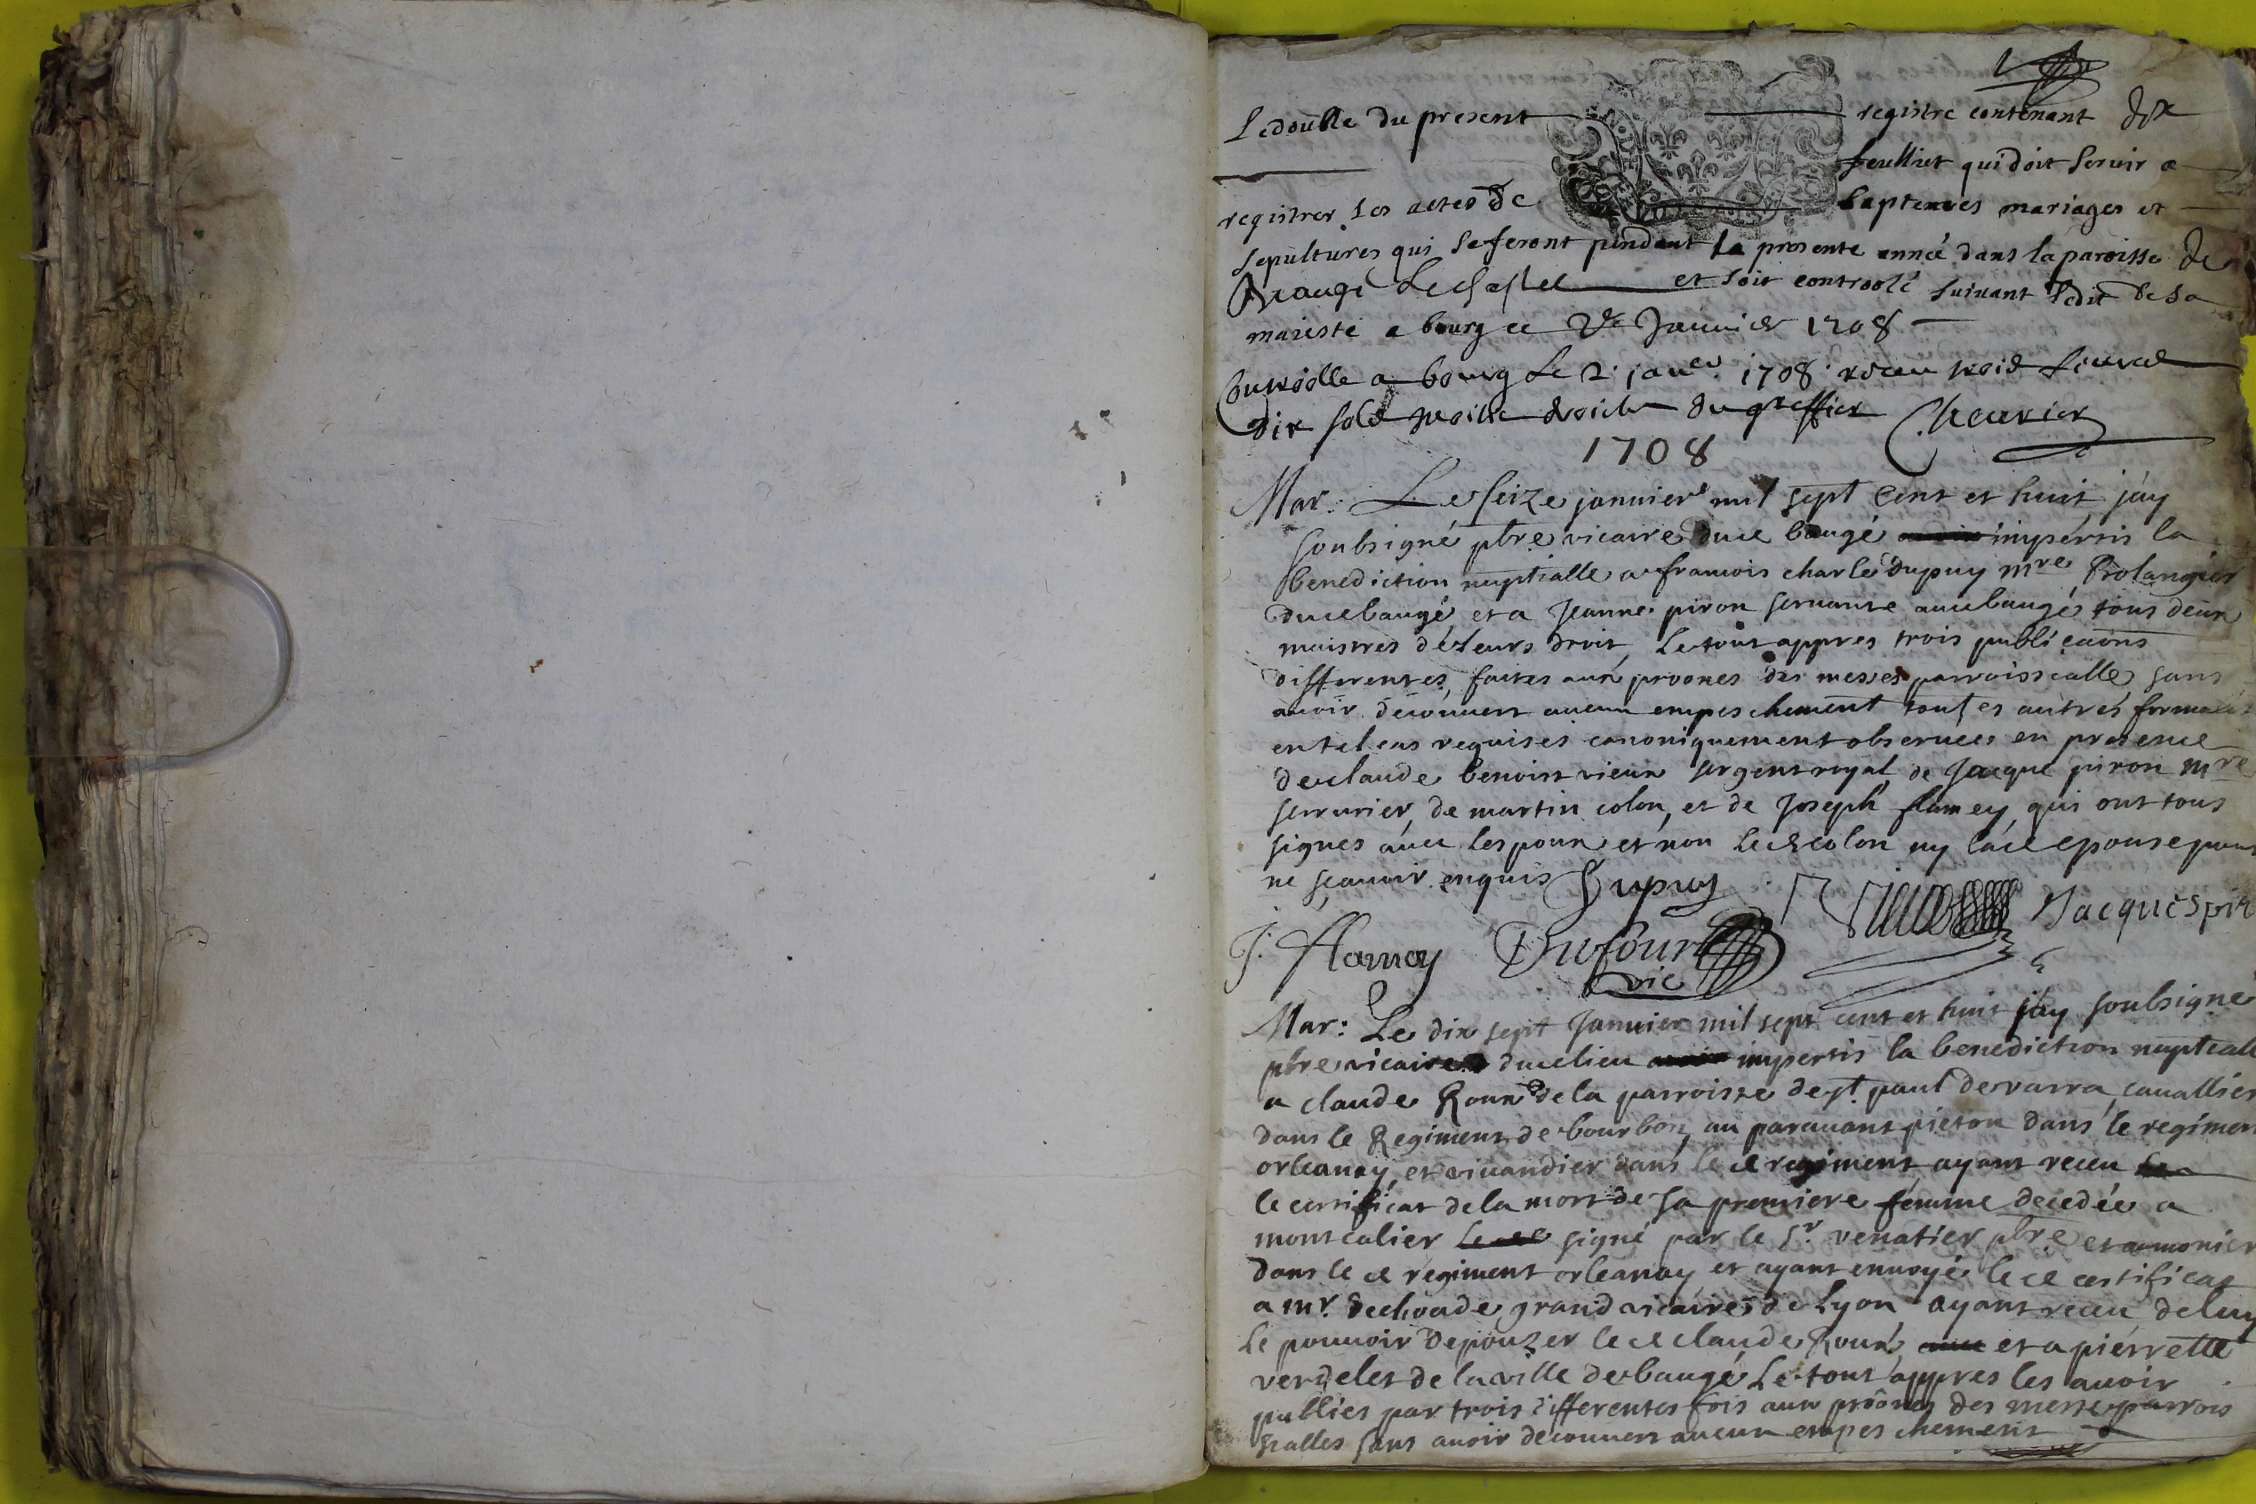 Le double du present registre contenant dix
feulliet qui doit servir a
registrer les actes de baptemes mariages et
sepultures qui se feront pendant la presente année dans la paroisse de
Baugé Le Chastel et soit controolé suivant l'edit de sa
maiesté a bourg ce 2e Janvier 1708
Controlle a bourg le 2. janer. 1708. receu trois livres
dix sols moitié droits du greffier Cheurier
1708
Mar: Le seize janvier mil sept cent et huit j'ay
soubsigné pbre vicaire dud baugé impérti la
benediction nuptialle a francois charle dupuy mre
dud baugé et a Jeanne piron servante aud baugé tous deux
maistres de leurs droit, le tout appres trois publicaons
differentes, faites aux proones des messes parroissialle, sans
avoir découvert aucun empeschement toutes autres
en tel cas requises canoniquement observees en presence
de claude benoist vieux sergent royal, de Jacque piron mre
serrurier, de martin colon, et de Joseph flamey, qui ont tous
signes avec lespoux et non led colon ny lad epouse pour
ne scavoir enquis Dupuy
Jacques pir
J. flamey Dufour
vic
Mar: Le dix sept Janvier mil sept cent et huit j'ay soubsigne
pbre vicaire dud lieu impertis la benediction nuptcale
a claude Roux de la parroisse de st. paul de varra, cavallier
dans le Regiment de bourbon, au paravant pieton dans le regimen
orleanay, et vivandier dans le d regiment, ayant receu
le certificat de la mort de sa premiere femme decedée a
montcalier signé par le sr. venatier pbre et aumonier
dans le d regiment orleanay et ayant envoyé le d certificat
a mr. grand vicaire de Lyon ayant receu de luy
le pouvoir depouzer le d claude Roux et a pierrette
verdelet de la ville de baugé, Le tout appres les avoir
publies par trois differentes fois aux proônes des messe parrois
sialles sans avoir decouvert aucun empeschement